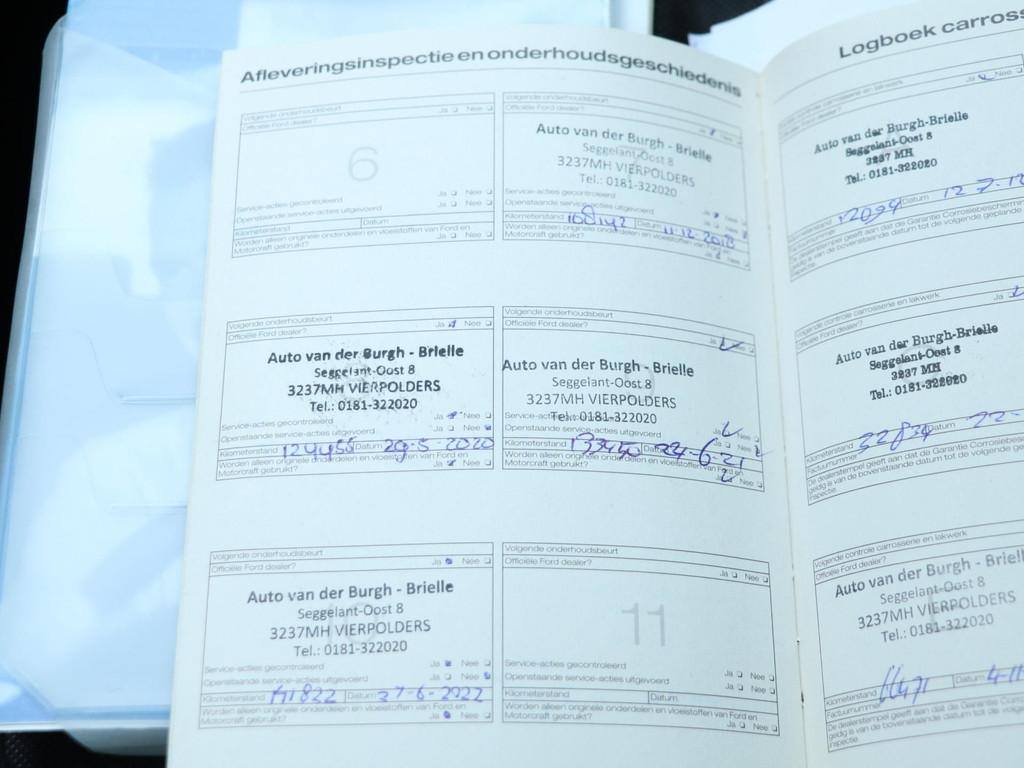 Afleveringsinspectie en onderhoudsgeschiedenis
Volgende onderhoudsbeurt
Officiële Ford dealer? Ja Nee
6
Service-acties gecontroleerd Ja Nee
Openstaande service-acties uitgevoerd Ja Nee
Kilometerstand Datum
Worden alleen originele onderdelen en vloeistoffen van Ford en
Motorcraft gebruikt? Ja Nee
Volgende onderhoudsbeurt
Officiële Ford dealer? Ja Nee
Auto van der Burgh - Brielle
Seggelant-Oost 8
3237MH VIERPOLDERS
Tel.: 0181-322020
Service-acties gecontroleerd
Openstaande service-acties uitgevoerd Ja Nee
Kilometerstand Datum 11-12-2018
Worden alleen originele onderdelen en vloeistoffen van Ford en
Motorcraft gebruikt? Ja Nee
Volgende onderhoudsbeurt
Officiële Ford dealer? Ja Nee
Auto van der Burgh - Brielle
Seggelant-Oost 8
3237MH VIERPOLDERS
Tel.: 0181-322020
Service-acties gecontroleerd Ja Nee
Openstaande service-acties uitgevoerd Ja Nee
Kilometerstand 124455 Datum 29-5-2020
Worden alleen originele onderdelen en vloeistoffen van Ford en
Motorcraft gebruikt? Ja Nee
Volgende onderhoudsbeurt
Officiële Ford dealer? Ja Nee
Auto van der Burgh - Brielle
Seggelant-Oost 8
3237MH VIERPOLDERS
Tel.: 0181-322020
Service-acties gecontroleerd Ja Nee
Openstaande service-acties uitgevoerd Ja Nee
Kilometerstand 133440 Datum 24-6-21
Worden alleen originele onderdelen en vloeistoffen van Ford en
Motorcraft gebruikt? Ja Nee
Volgende onderhoudsbeurt
Officiële Ford dealer? Ja Nee
Auto van der Burgh - Brielle
Seggelant-Oost 8
3237MH VIERPOLDERS
Tel.: 0181-322020
Service-acties gecontroleerd Ja Nee
Openstaande service-acties uitgevoerd Ja Nee
Kilometerstand 141822 Datum 27-6-2022
Worden alleen originele onderdelen en vloeistoffen van Ford en
Motorcraft gebruikt? Ja Nee
Volgende onderhoudsbeurt
Officiële Ford dealer? Ja Nee
11
Service-acties gecontroleerd Ja Nee
Openstaande service-acties uitgevoerd Ja Nee
Kilometerstand Datum
Worden alleen originele onderdelen en vloeistoffen van Ford en
Motorcraft gebruikt? Ja Nee
Logboek carross
Volgende controle carrosserie en lakwerk
Officiële Ford dealer? Ja Nee
Auto van der Burgh-Brielle
Seggelant-Oost 8
3237 MH
Tel.: 0181-322020
Datum 12-7-1
De dealerstempel geeft aan dat de Garantie Corrosiebescherming
geldig is van de bovenstaande datum tot de volgende geplande
inspectie.
Volgende controle carrosserie en lakwerk
Officiële Ford dealer? Ja
Auto van der Burgh-Brielle
Seggelant-Oost 8
3237 MH
Tel.: 0181-322020
Kilometerstand Datum 22-
Factuurnummer
De dealerstempel geeft aan dat de Garantie Corrosiebesc
geldig is van de bovenstaande datum tot de volgende ge
inspectie.
Volgende controle carrosserie en lakwerk
Officiële Ford dealer?
Auto van der Burgh - Briell
Seggelant-Oost 8
3237MH VIERPOLDERS
Tel.: 0181-322020
Kilometerstand Datum 4-11
Factuurnummer
De dealerstempel geeft aan dat de Garantie Corro
geldig is van de bovenstaande datum tot de volg
inspectie.